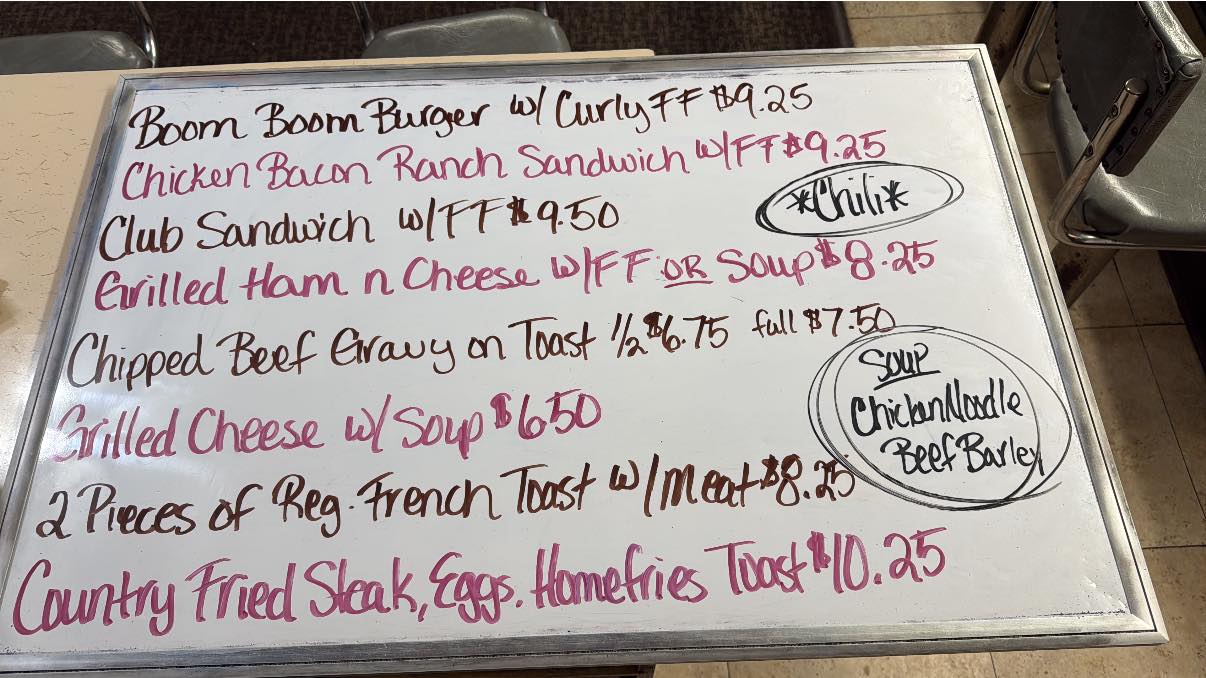 Boom Boom Burger w/ Curly FF $9.25
Chicken Bacon Ranch Sandwich w/FF $9.25
*Chili*
Club Sandwich w/FF $9.50
Grilled Ham n Cheese w/FF OR Soup $8.25
Chipped Beef Gravy on Toast 1/2 $6.75 full $7.50
Soup
Chicken Noodle
Beef Barley
Grilled Cheese w/ Soup $6.50
2 Pieces of Reg. French Toast w/ Meat $8.25
Country Fried Steak, Eggs. Homefries Toast $10.25